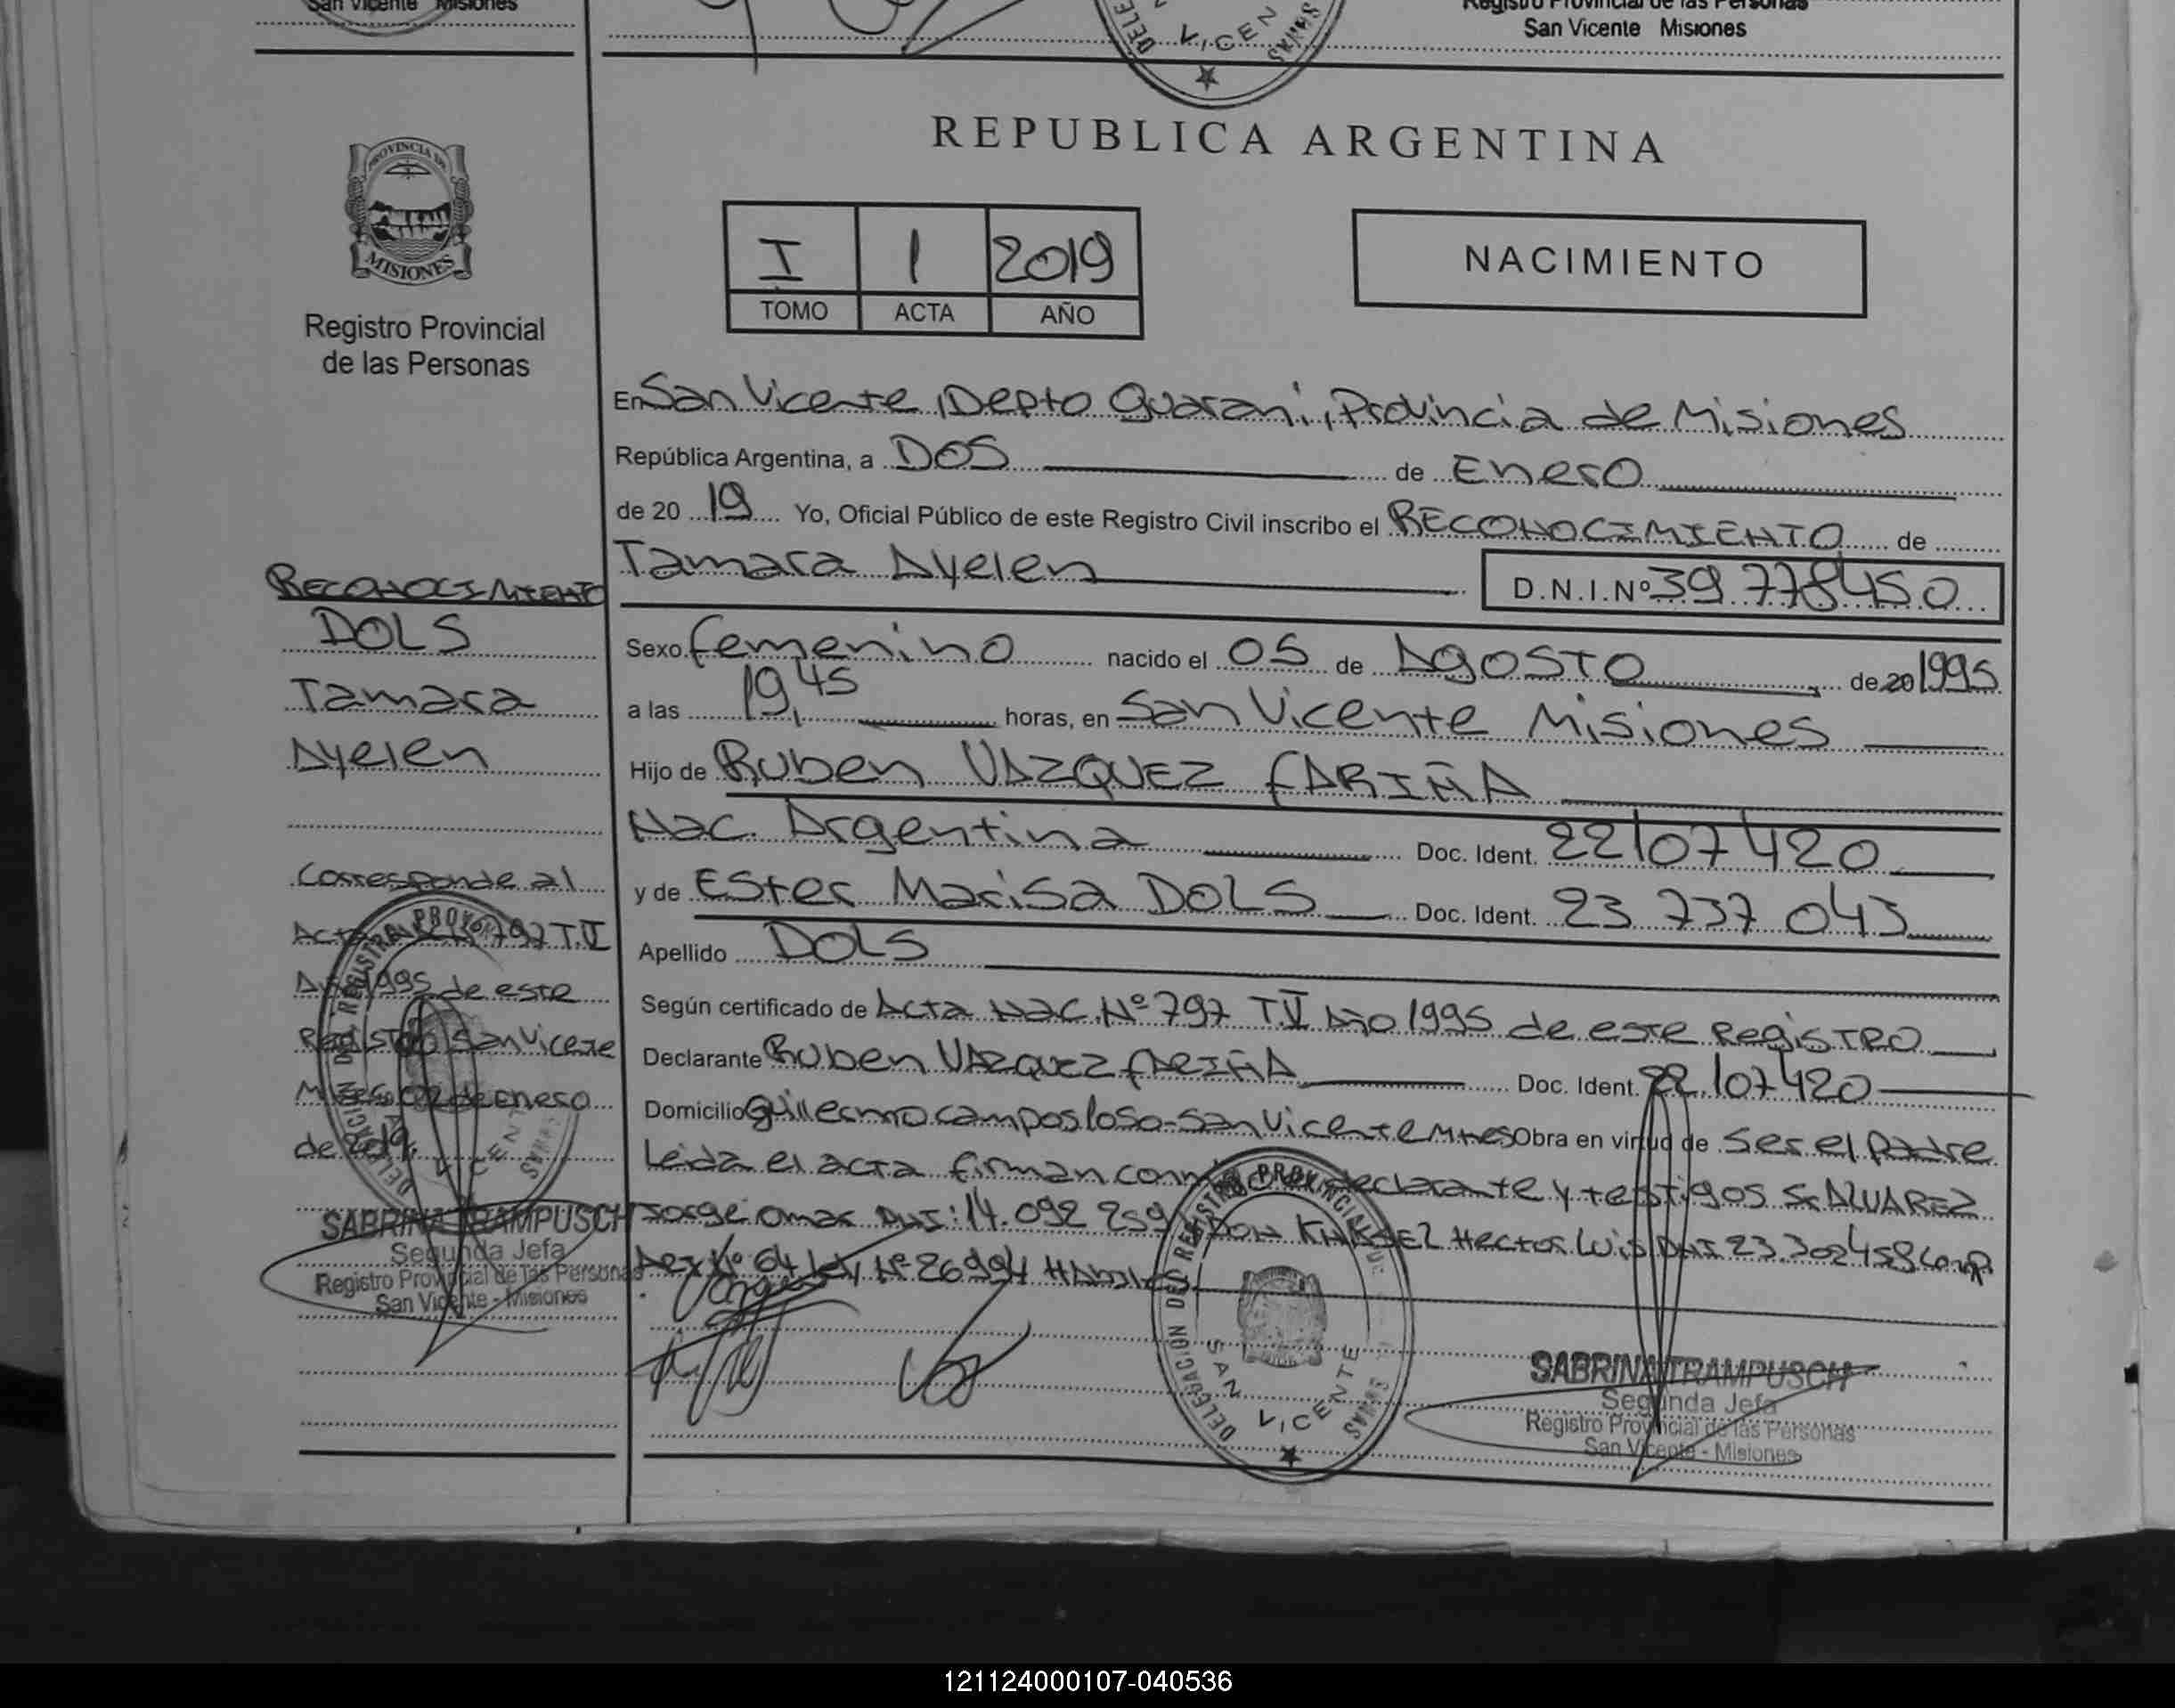 San Vicente Misiones
Registro Provincial de las Personas
San Vicente Misiones
DELE VICEN
REPUBLICA ARGENTINA
PROVINCIA DE
MISIONES
Registro Provincial
de las Personas
I 1 2019
TOMO ACTA AÑO
NACIMIENTO
En San Vicente, Depto Guarani, Provincia de Misiones
República Argentina, a DOS de Enero
de 20 19 Yo, Oficial Público de este Registro Civil inscribo el RECONOCIMIENTO de
Tamara Ayelen
D.N.I.Nº 39.778450
Sexo femenino nacido el 05 de Agosto de 20 1995
a las 19,45 horas, en San Vicente Misiones
Hijo de Ruben VAZQUEZ FARIÑA
Nac. Argentina Doc. Ident. 22107420
y de Ester Marisa DOLS Doc. Ident. 23.737.043
Apellido DOLS
Según certificado de Acta Nac. Nº 797 T.V Año 1995 de este Registro
Declarante Ruben VAZQUEZ FARIÑA Doc. Ident. 22.107420
Domicilio Guillermo campos losa-San Vicente Mnes Obra en virtud de Ser el padre
Leida el acta firman declarante y testigos Sr ALVAREZ
Jorge Omar DNI: 14.092 259 Hector Luis DNI 23.302458
Nº 64 Ley Nº 26994
RECONOCIMIENTO
DOLS
Tamara
Ayelen
Corresponde al
Acta 797 T.V
Año 1995 de este
Registro San Vicente
Mnes 02 de Enero
de 2019
SABRINA TRAMPUSCH
Segunda Jefa
Registro Provincial de las Personas
San Vicente - Misiones
DELEGACION DEL REGISTRO PROVINCIAL
SAN VICENTE
SABRINA TRAMPUSCH
Segunda Jefa
Registro Provincial de las Personas
San Vicente - Misiones
121124000107-040536